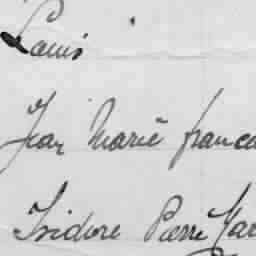 Louis
Jean Marie franco
Isidore Pierre Mar